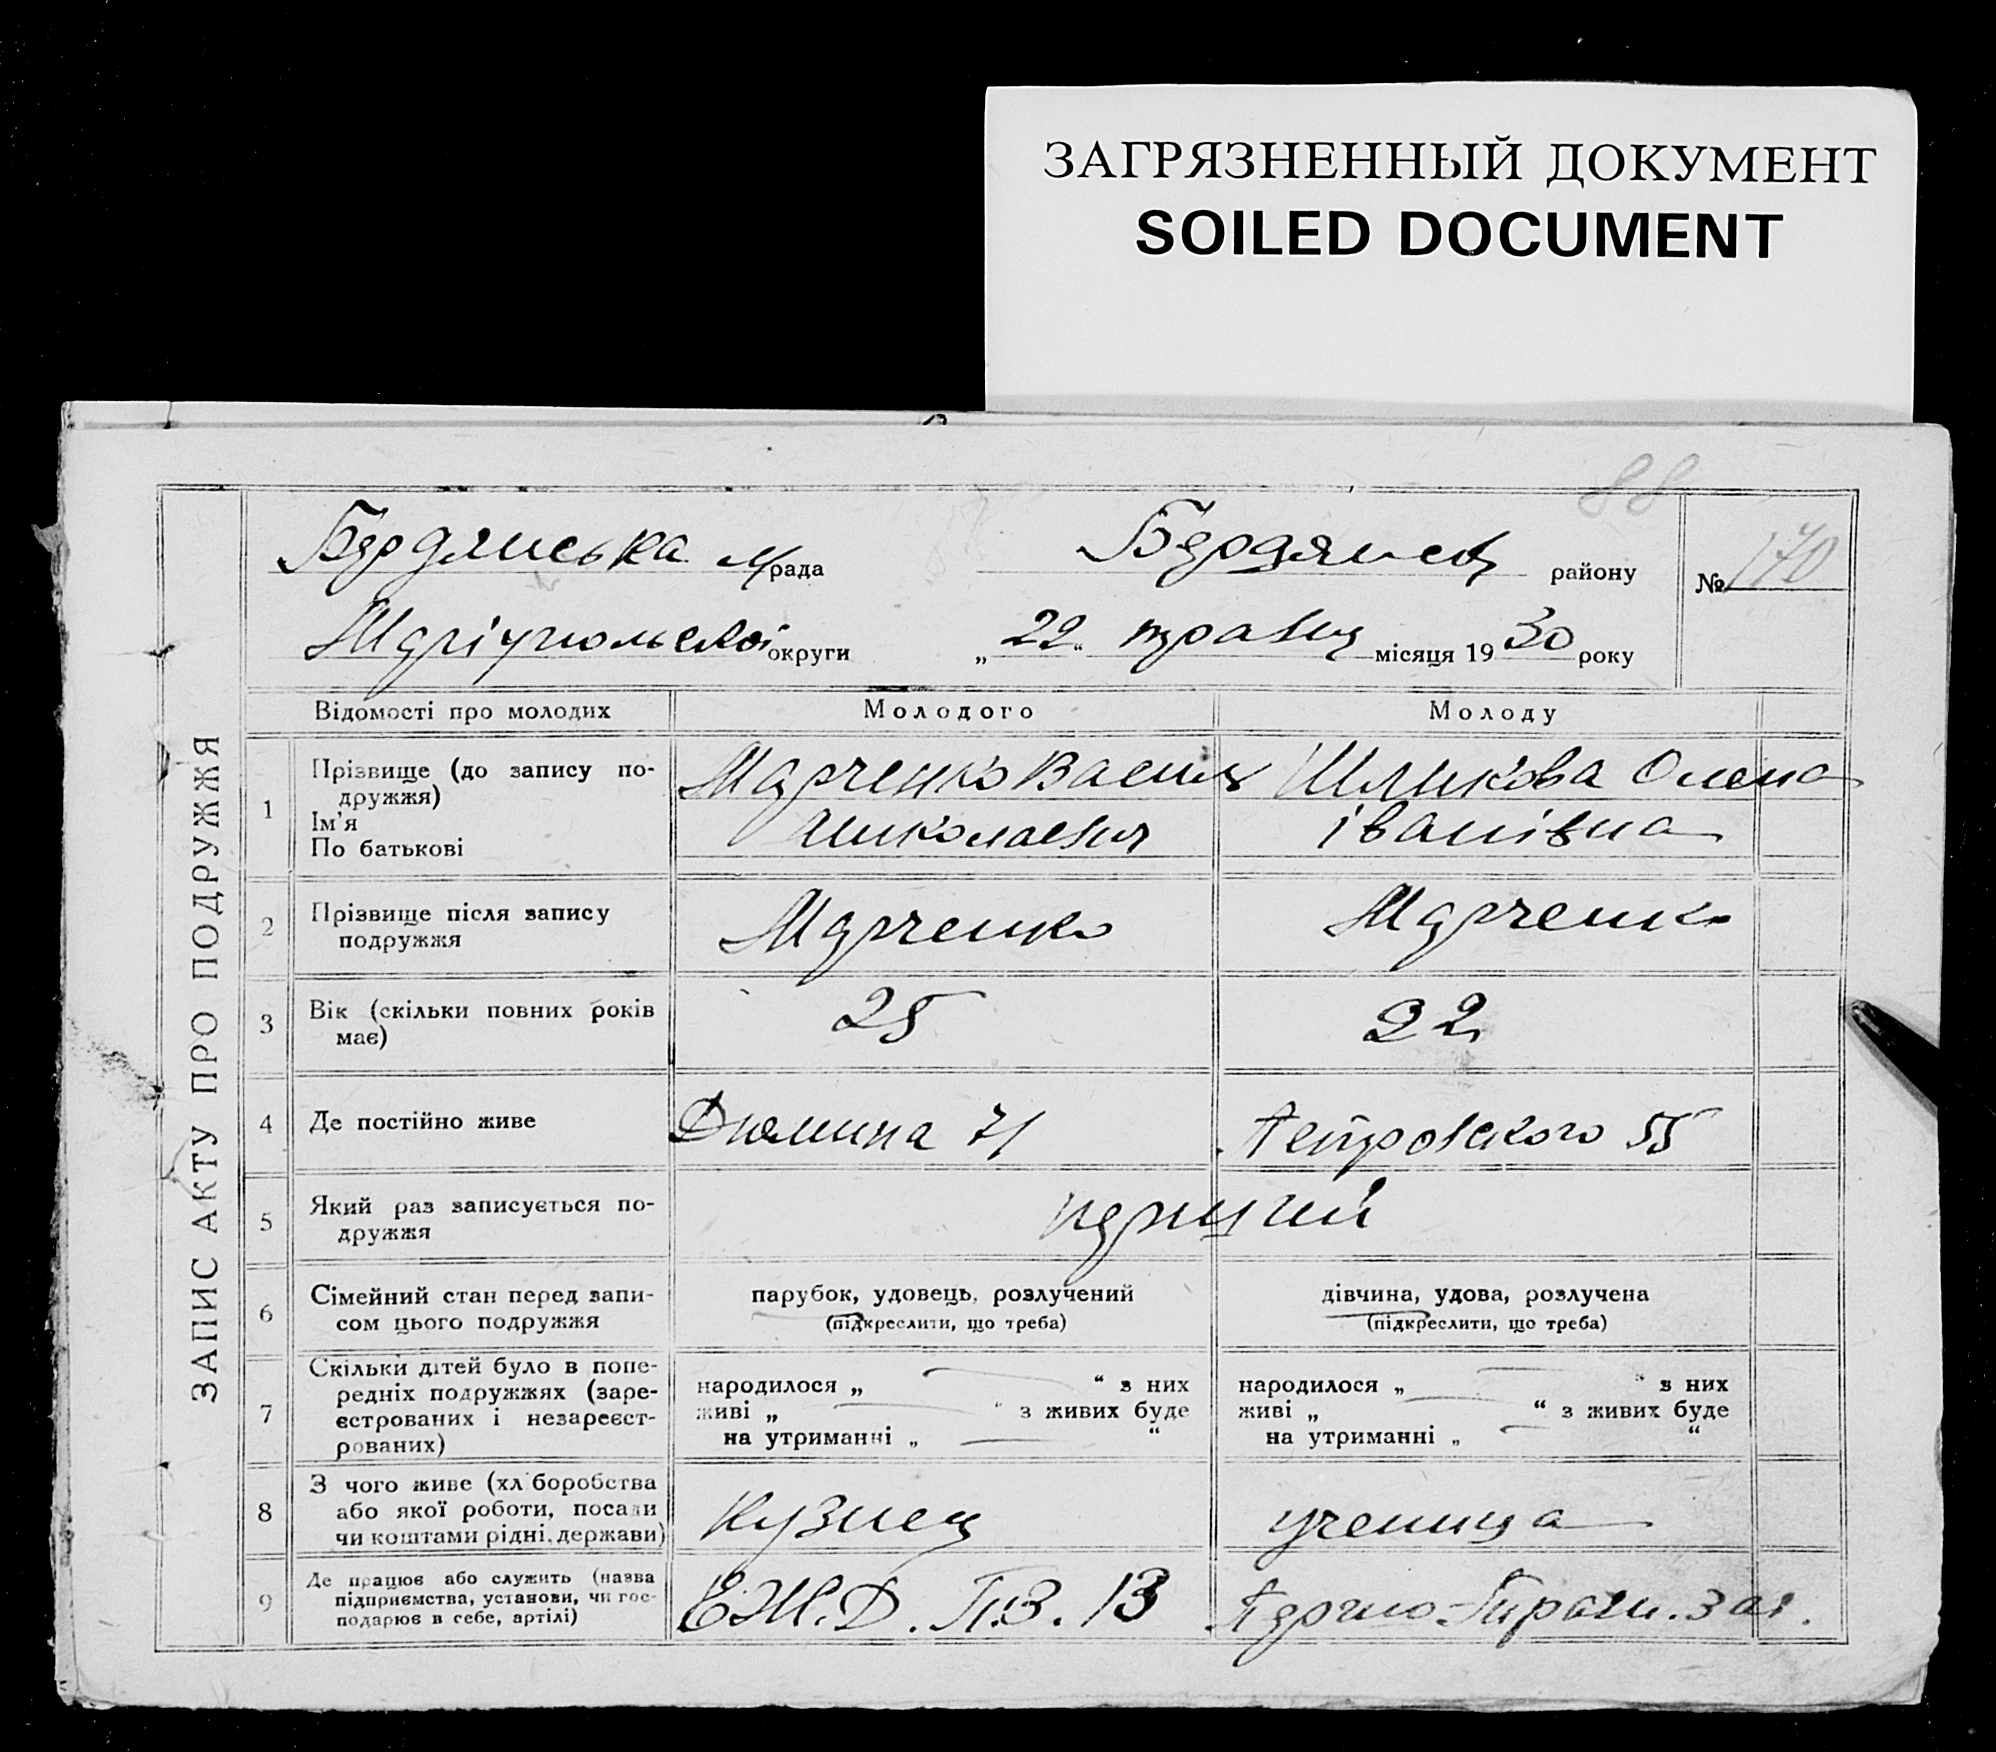 ЗАГРЯЗНЕННЫЙ ДОКУМЕНТ
SOILED DOCUMENT
88
Бердянська м/рада Бердянськ району № 170
Маріупольської округи „22“ травня місяця 1930 року
ЗАПИС АКТУ ПРО ПОДРУЖЖЯ
Відомості про молодих Молодого Молоду
1 Прізвище (до запису по-
дружжя)
Ім'я
По батькові
Марченко Василь
Николаевич
Шликова Олена
іванівна
2 Прізвище після запису
подружжя
Марченко Марченко
3 Вік (скільки повних років
має)
25 22
4 Де постійно живе
Дюмина 71 Петровского 55
5 Який раз записується по-
дружжя
перший
6 Сімейний стан перед запи-
сом цього подружжя
парубок, удовець, розлучений
(підкреслити, що треба)
дівчина, удова, розлучена
(підкреслити, що треба)
7 Скільки дітей було в попе-
редніх подружжях (заре-
єстрованих і незареєст-
рованих)
народилося „ “ з них
живі „ “ з живих буде
на утриманні „ “
народилося „ “ з них
живі „ “ з живих буде
на утриманні „ “
8 З чого живе (хліборобства
або якої роботи, посади
чи коштами рідні, держави)
Кузнец ученица
9 Де працює або служить (назва
підприємства, установи, чи гос-
подарює в себе, артілі)
Е.Ж.Д. П.З. 13